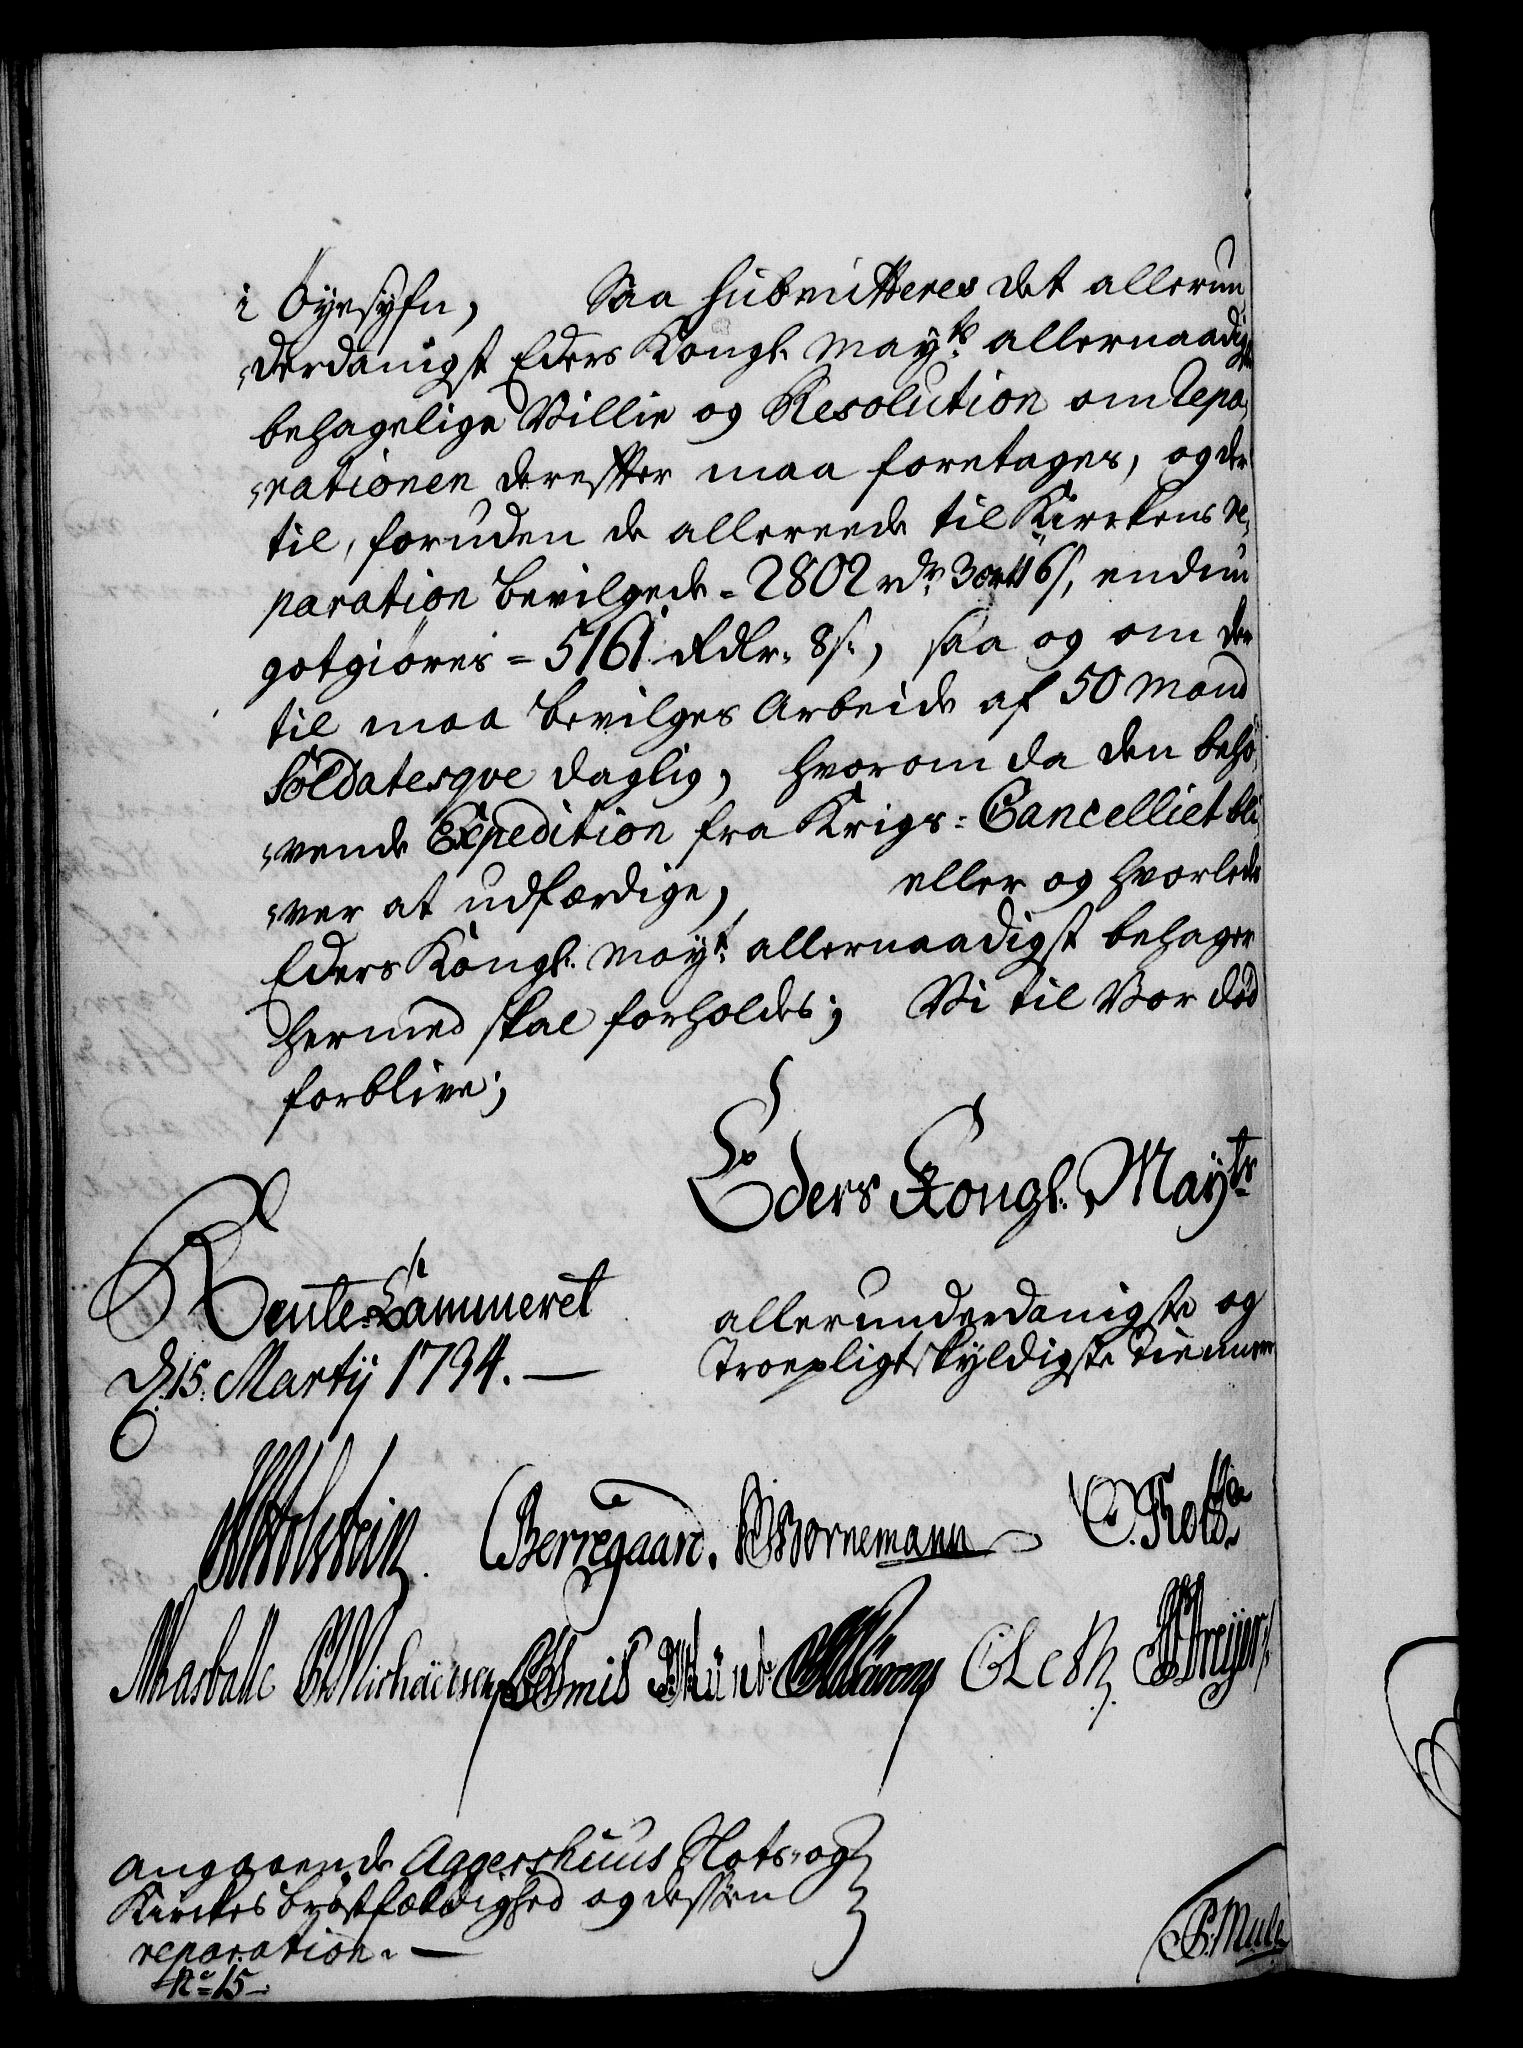 i Øyesyfn, Saa submitteres det allerun
„derdanigst Eders Kongl. Mayts allernaadigste
behagelige Villie og Resolution om Repa,
„rationen derefter maa foretages, og der
til, foruden de allereede til Kirckens re,
paration bevilgede = 2802 rdr. 3 ort 16 s, endnu
gotgiøres = 5161 Rdlr. 8 s., saa og om der
til maa bevilges Arbeide af 50 Mand
Soldatesqve daglig, hvorom da den behø,
„vende Expedition fra Krigs=Cancelliet bli
„ver at udfærdige, eller og hvorledes
Eders Kongl. Mayt. allernaadigst behager
hermed skal forholdes; Vi til Vor død
forblive;
Eders Kongl. Mayts
Rente Cammeret
d. 15. Martij 1734. —
allerunderdanigste og
Troepligtskyldigste Tiennere
Holstein. CBerregaard. Bornemann C. Rothe
Masballe Michaelsen Smit Münt CLeth. Dreÿer
angaaende Aggershuus Slots- og
Kirckes brøstfældighed og dessen
reparation. —
No 15 —
P. Mule